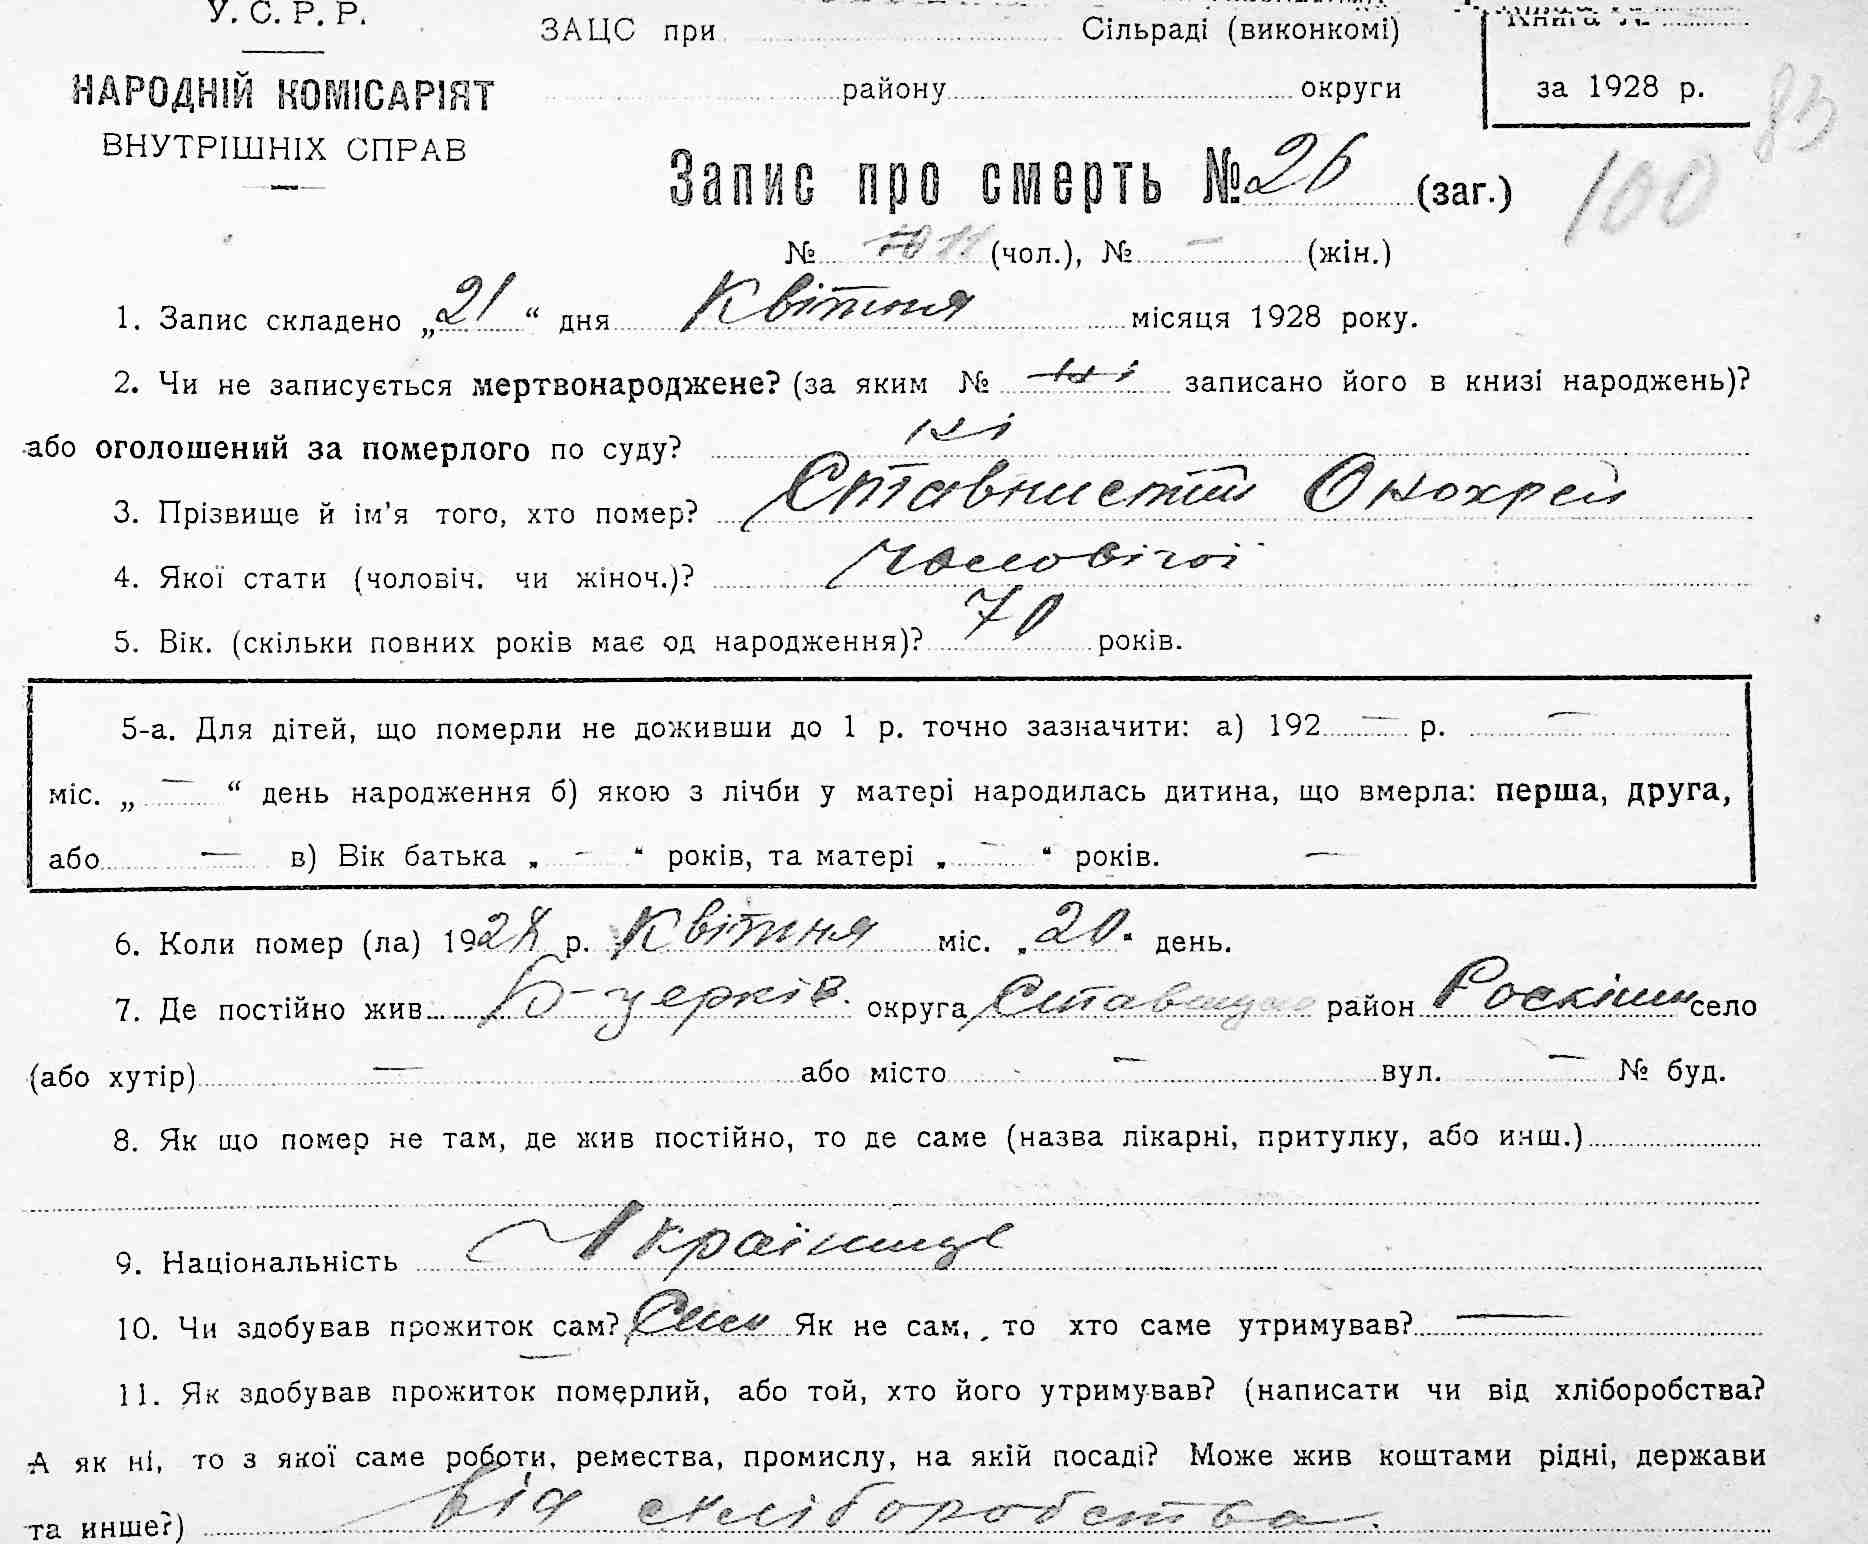 У. С. Р. Р.
НАРОДНІЙ КОМІСАРІЯТ
ВНУТРІШНІХ СПРАВ
ЗАЦС при Сільраді (виконкомі)
району округи
Книга №
за 1928 р.
83
100
Запис про смерть № 26 (заг.)
№ 11 (чол.), № — (жін.)
1. Запис складено „21“ дня Квітня місяця 1928 року.
2. Чи не записується мертвонароджене? (за яким № ні записано його в книзі народжень)?
або оголошений за померлого по суду? ні
3. Прізвище й ім'я того, хто помер? Ставнистий Онохрей
4. Якої стати (чоловіч. чи жіноч.)? Чоловічої
5. Вік. (скільки повних років має од народження)? 70 років.
5-а. Для дітей, що померли не доживши до 1 р. точно зазначити: а) 192 — р. —
міс. „ — “ день народження б) якою з лічби у матері народилась дитина, що вмерла: перша, друга,
або — в) Вік батька „ - “ років, та матері „ — “ років. —
6. Коли помер (ла) 1928 р. Квітня міс. „20“ день.
7. Де постійно жив Б-церків. округа район село
(або хутір) — або місто — вул. — № буд.
8. Як що помер не там, де жив постійно, то де саме (назва лікарні, притулку, або инш.)
9. Національність Українець
10. Чи здобував прожиток сам? Сам Як не сам, то хто саме утримував? —
11. Як здобував прожиток померлий, або той, хто його утримував? (написати чи від хліборобства?
А як ні, то з якої саме роботи, ремества, промислу, на якій посаді? Може жив коштами рідні, держави
та инше?) Від хліборобства.